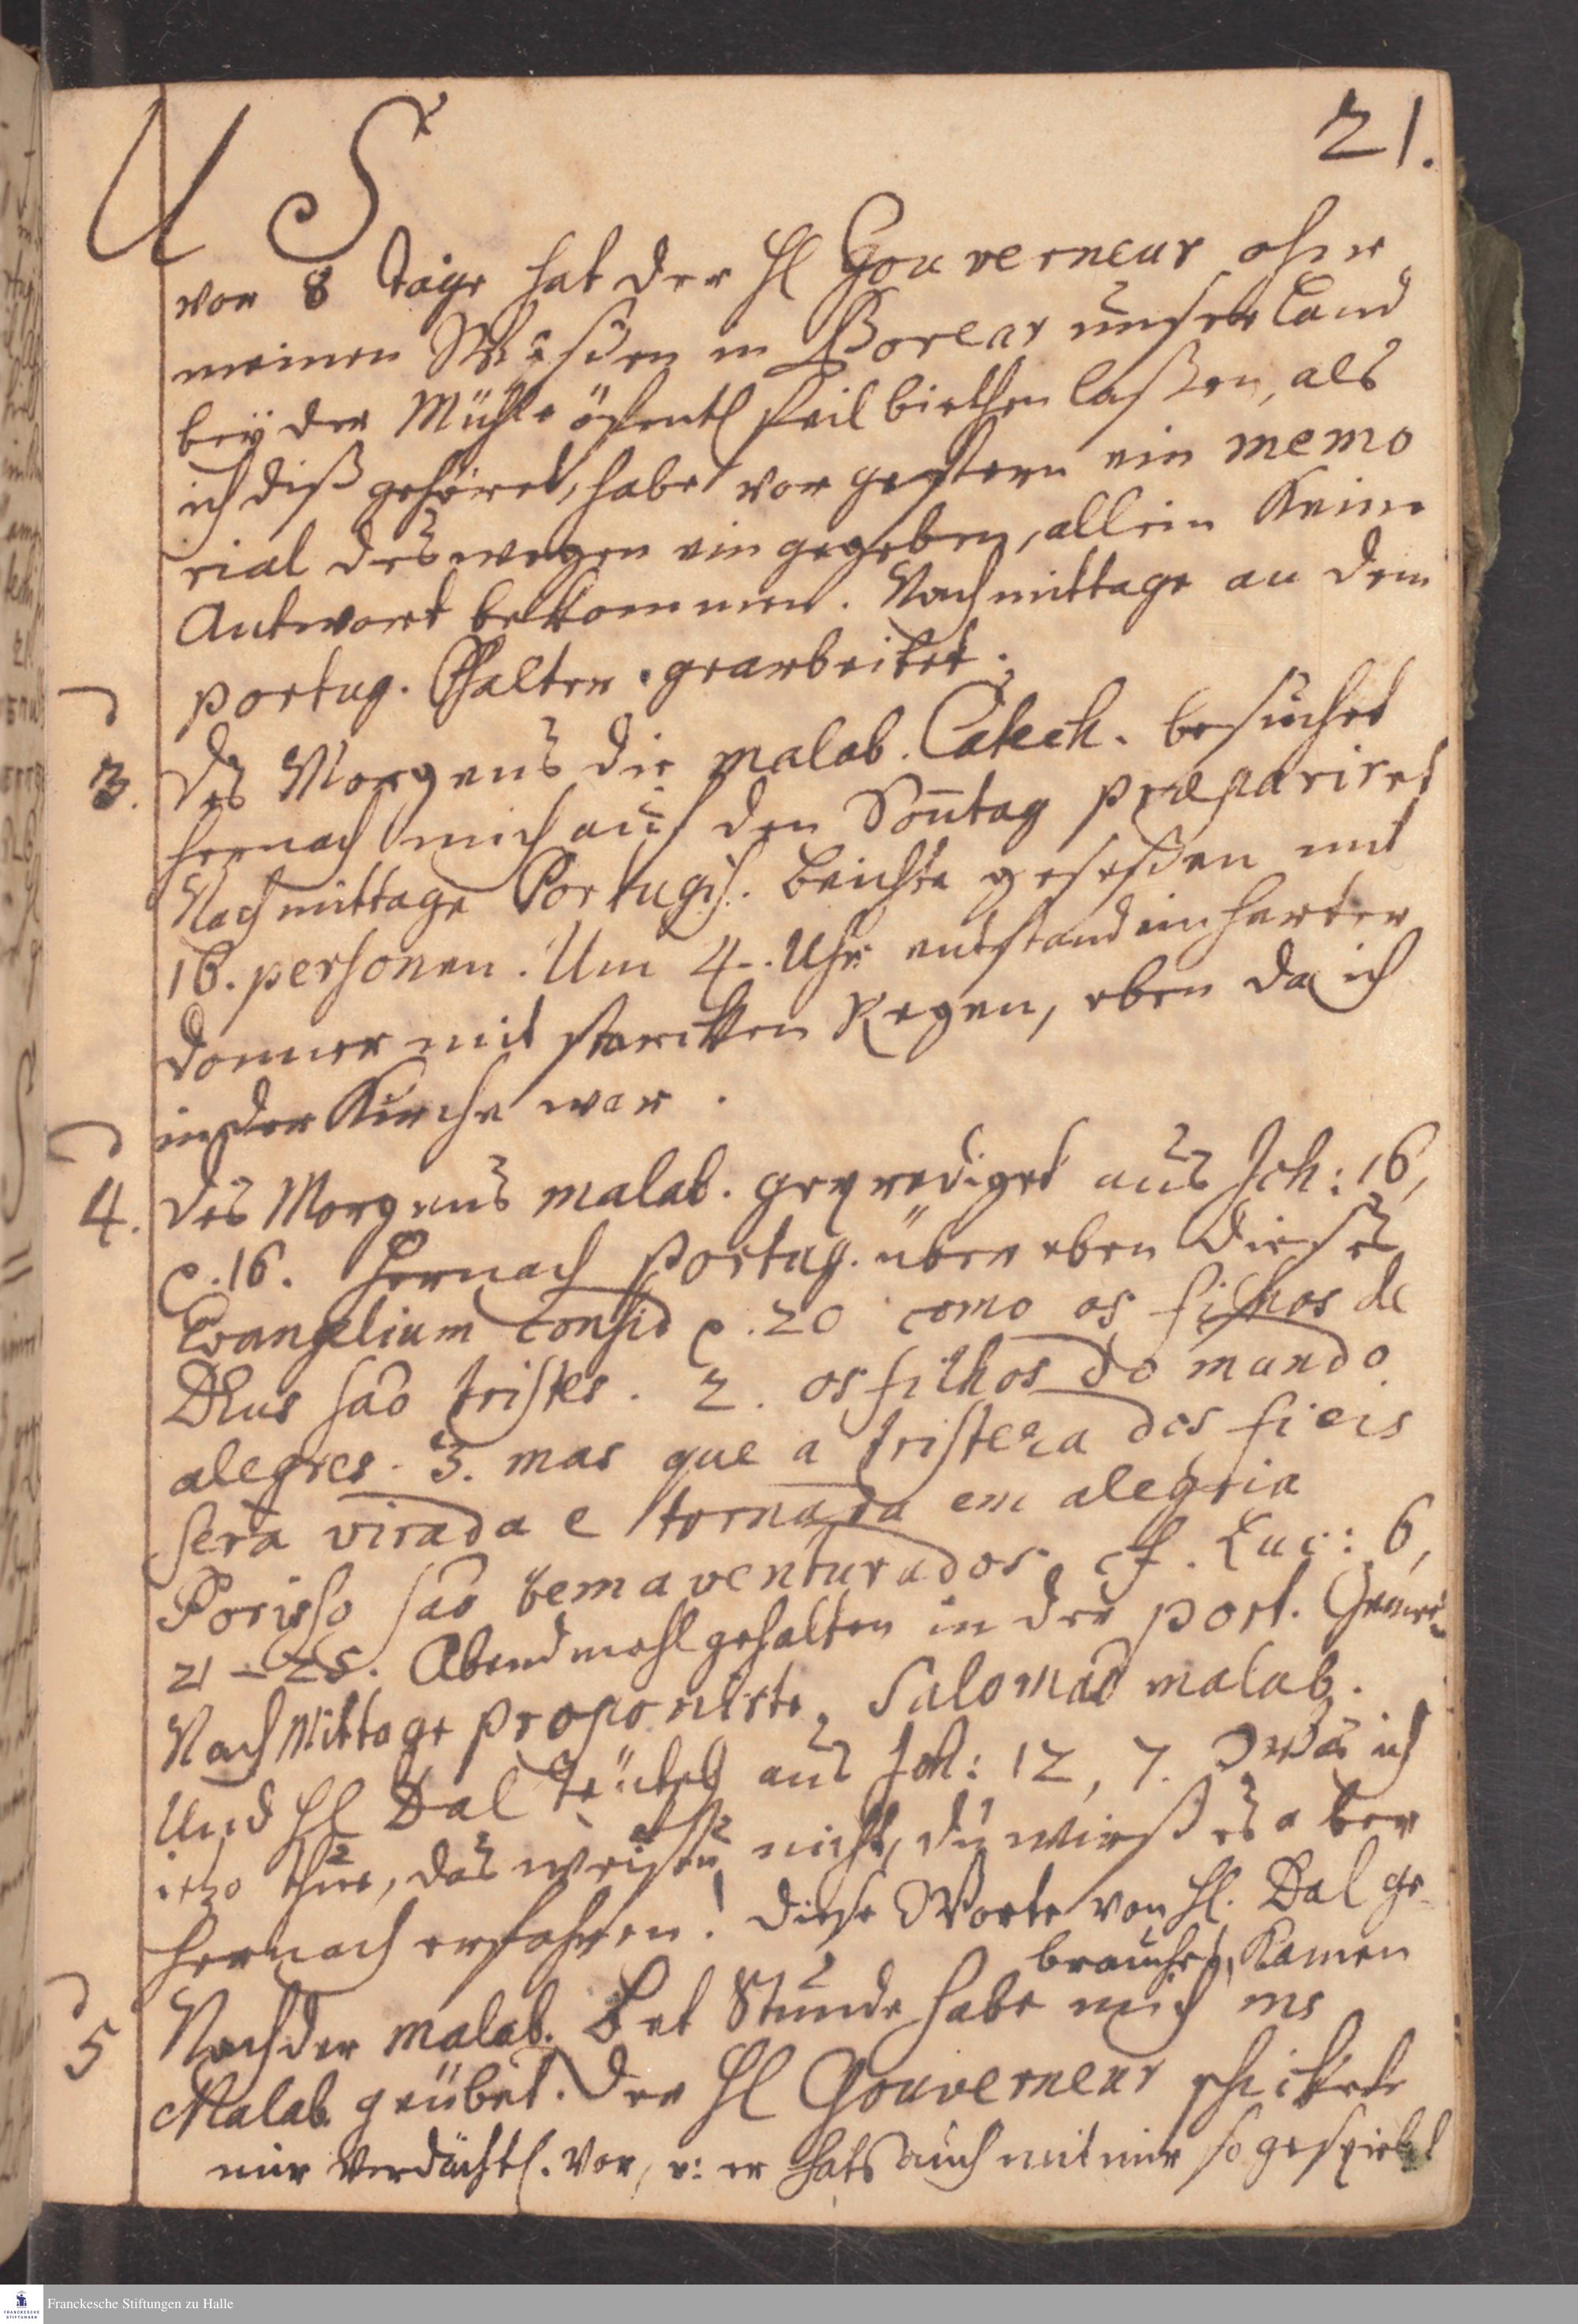 U S
21.
vor 8 Tage hat der Hl Gouverneur ohne
meinen Wißen in Porear unser Land
bey der Mühle öffentl feil biethen laßen, als
ich diß gehöret, habe vor gestern ein memo
rial deswegen ein gegeben, allein keine
Antwort bekommen. Nachmittage an dem
portug. Psalter gearbeitet.
3. Des Morgens die malab. Catech. besuchet
hernach mich auf den Sontag præpariret
Nachmittage Portugis. Beichte geseßen mit
16. personen. Um 4. Uhr entstand ein harter
Donner mit starcken Regen, eben da ich
in der Kirche war.
4. Des Morgens malab. geprediget aus Joh: 16,
e. 16. Hernach portug. über eben dieses
Evangelium Consid e. 20 como os filhos de
DEus saõ tristes. 2. os filhos do mundo
alegres. 3. mas que a tristeza dos fieis
sera virada e tornada em alegria
Porisso saõ bemaventurados. cf. Luc: 6,
21–25. Abendmahl gehalten in der port. Gemei¬
Nach Mittage proponirte Salomaõ malab.
Und Hl Dal teutsch aus Joh: 12, 7. Was ich
ietzo thue, das weistu nicht, du wirst es aber
hernach erfahren! Diese Worte von Hl. Dal ge¬
brauchet, kamen
5 Nach der malab. Bet Stunde habe mich ins
Malab. geübet. Der Hl Gouverneur schickete
mir verdächtl. vor, u: er hats auch mit mir so gespielet
Franckesche Stiftungen zu Halle